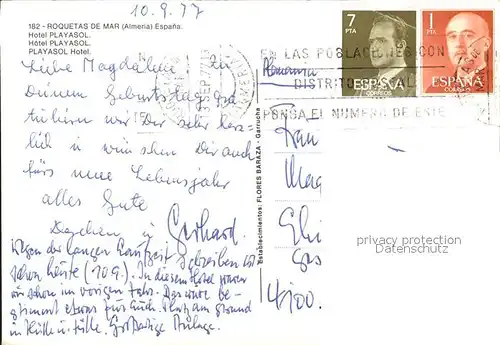 10.9.77
182 - ROQUETAS DE MAR (Almería) España.
Hotel PLAYASOL.
Hôtel PLAYASOL.
PLAYASOL Hotel.
7
PTA
ESPAÑA
CORREOS
1
PTA
ESPAÑA
CORREOS
EN LAS POBLACIONES CON
DISTRITO
PONGA EL NUMERO DE ESTE
Liebe Magdalena, zu
Deinem Geburtstag gra
tulieren wir Dir sehr herz
lich u. wünschen Dir auch
fürs neue Lebensjahr
alles Gute
u. Gerhard.
Wegen der langen Laufzeit schreiben wir
schon heute (10.9.). In diesem Hotel waren
wir schon im vorigen Jahr. Das wäre be-
stimmt etwas für Euch. Platz am Strand
in Hülle u. Fülle. Großartige Anlage.
Establecimientos: FLORES BARAZA - Garrucha
Frau
Mag
4100
privacy protection
Datenschutz